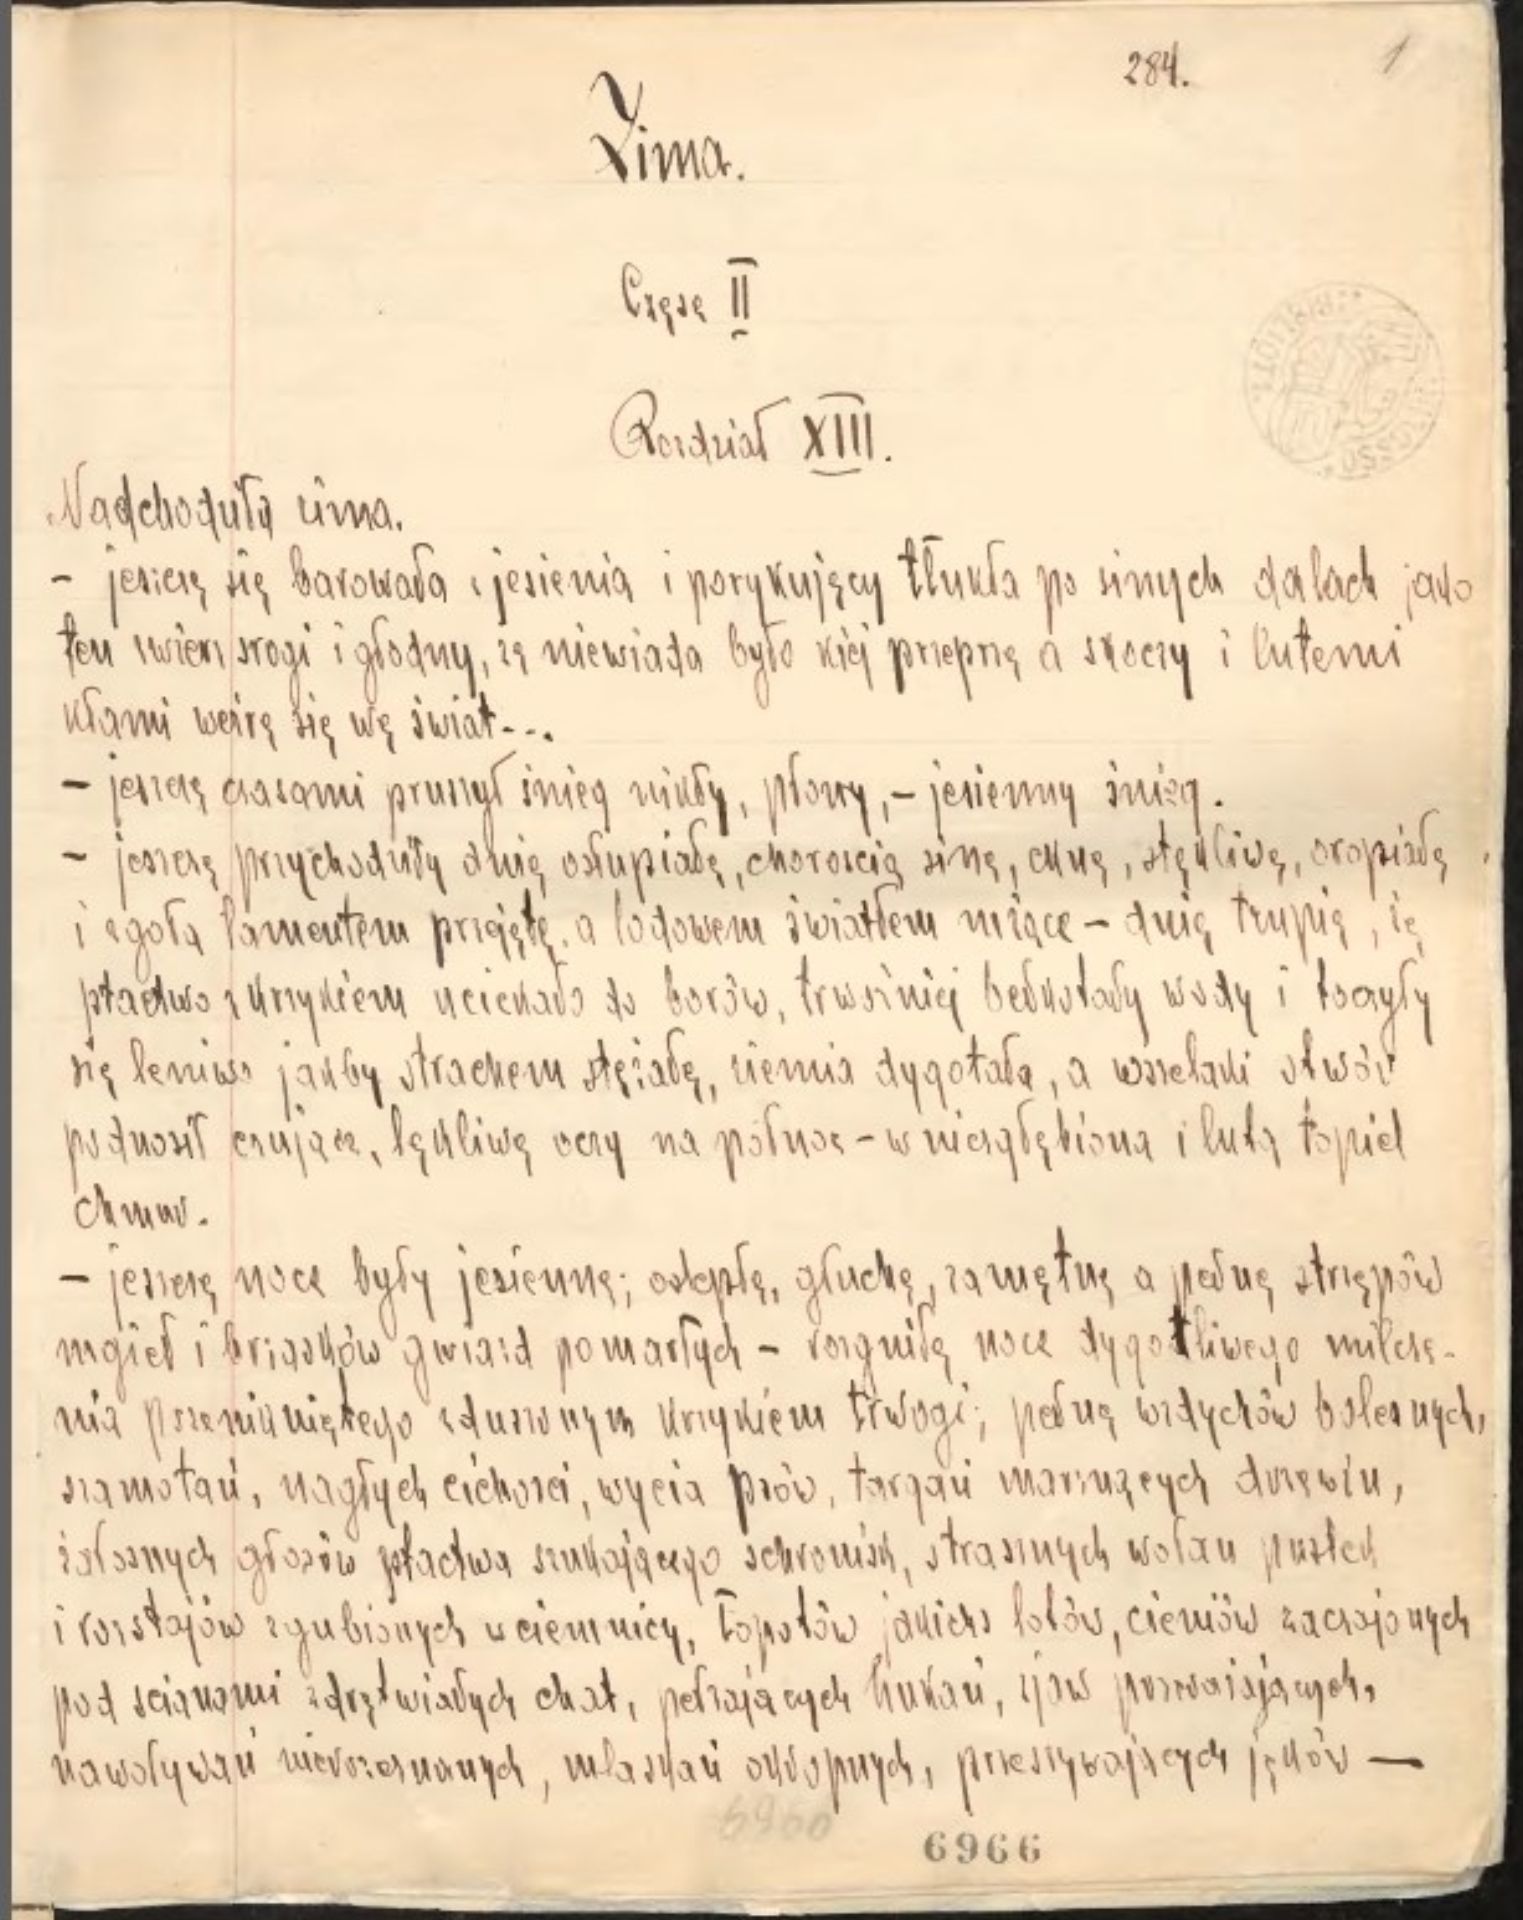 284. 1
Zima.
Część II
Rozdział XIII.
Nadchodziła zima.
– jeszcze się barowała z jesienią i porykujący tłukła po sinych dalach jako
ten zwierz srogi i głodny, że niewiada było kiej przeprze a skoczy i lutemi
kłami weżre się we świat---.
– jeszcze czasami pruszył śnieg nikły, płowy, – jesienny śnieg.
– jeszcze przychodziły dnie osłupiałe, chorością sine, ckne, stękliwe, oropiałe
i zgoła lamentem przejęte, a lodowem światłem mżące – dnie trupie, że
ptactwo z krzykiem uciekało do borów, trwożniej bełkotały wody i toczyły
się leniwo jakby strachem stężałe, ziemia dygotała, a wszelaki stwór
podnosił czujące, lękliwe oczy na północ – w niezgłębioną i lutą topiel
chmur.
– jeszcze noce były jesienne; oślepłe, głuche, zamętne a pełne strzępów
mgieł i brzasków gwiazd pomarłych – rozgniłe noce dygotliwego milcze-
nia przenikniętego zduszonym krzykiem trwogi; pełne wzdychów bolesnych,
szamotań, nagłych cichości, wycia psów, targań marznących drzewin,
żałosnych głosów ptactwa szukającego schronisk, strasznych wołań pustek
i rozstajów zgubionych w ciemnicy, łopotów jakichś lotów, cieniów zaczajonych
pod ścianami zdrętwiałych chat, pełzających hukań, zjaw przerażających,
nawoływań nierozeznanych, mlaskań okropnych, przeszywających jęków —
6966